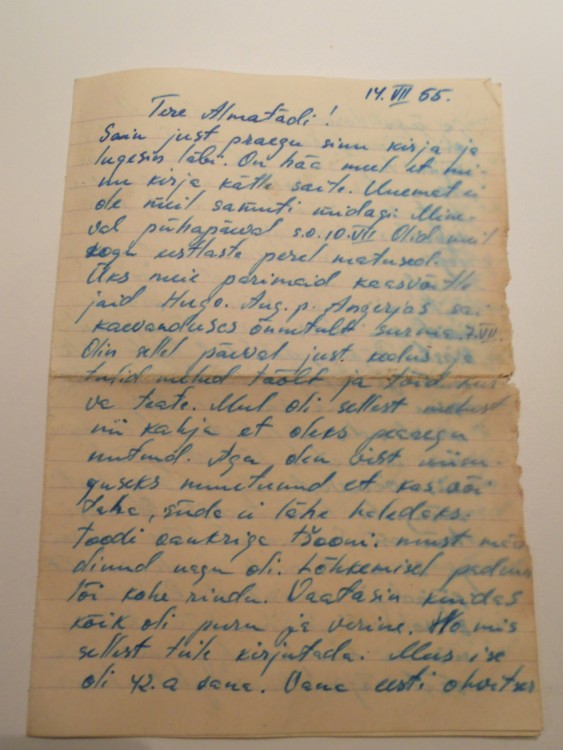 14. VII 55.
Tere Almatädi!
Sain just praegu sinu kirja ja
lugesin läbi. On hää meel et mi-
nu kirja kätte saite. Uuemat ei
ole meil samuti midagi. Möö-
val pühapäeval s.o. 10. VII olid meil
kogu eestlaste perel matused.
Üks meie parimaid kaasvõitle
jaid Hugo. Aug. p. Angerjas sai
kaevanduses õnnetult surma. 7. VII.
Olin sellel päeval just kodus ja
tulid mehed töölt ja tõid
va teate. Mul oli sellest
nii kahju et oleks peaegu
nutnud. Aga olen vist niisu-
guseks muutunud et kas või
taha, süda ei lähe heledaks.
Toodi vankriga tsooni. must mää
dinud nagu oli. Lõhkemisel
lõi kohe rindu. Vaatasin kindas
kõik oli puru ja verine. No mis
sellest teile kirjutada. Mees ise
oli 42. a vana. Vana eesti ohvitser